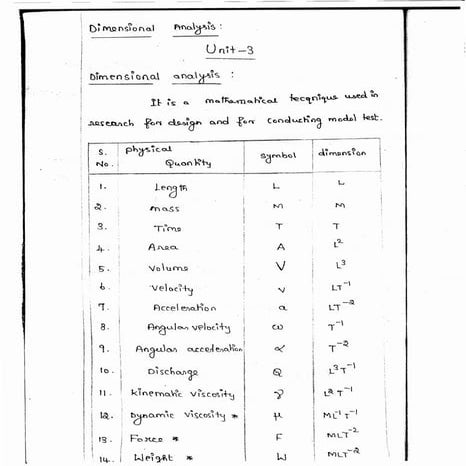 Dimensional Analysis :
Unit-3
Dimensional analysis :
It is a mathematical tecqnique used in
research for design and for conducting model test.
S. No. Physical Quantity symbol dimension
1. Length L L
2. mass M M
3. Time T T
4. Area A L²
5. Volume V L³
6. Velocity v LT⁻¹
7. Acceleration a LT⁻²
8. Angular velocity ω T⁻¹
9. Angular acceleration α T⁻²
10. Discharge Q L³T⁻¹
11. kinematic viscosity γ L²T⁻¹
12. Dynamic viscosity * μ ML⁻¹T⁻¹
13. Force * F MLT⁻²
14. Weight * W MLT⁻²